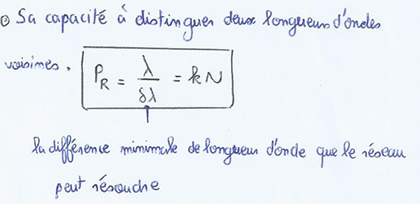 ⊙ Sa capacité à distinguer deux longueurs d'ondes
voisines. P_R = λ/δλ = kN
la différence minimale de longueur d'onde que le réseau
peut résoudre